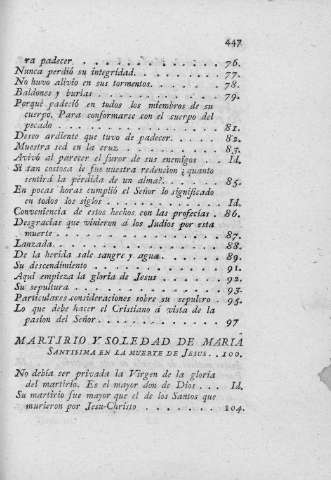 447
ra padecer. . . . . . . . . . . . . . 76.
Nunca perdió su integridad. . . . . . . . . 77.
No hubo alivio en sus tormentos. . . . . . . 78.
Baldones y burlas . . . . . . . . . . . . 79.
Porqué padeció en todos los miembros de su
cuerpo, Para conformarse con el cuerpo del
pecado . . . . . . . . . . . . . . . 81.
Deseo ardiente que tuvo de padecer. . . . . . 82.
Muestra sed en la cruz . . . . . . . . . . 83.
Avivó al parecer el furor de sus enemigos . . Id.
Si tan costosa le fue nuestra redencion ¿quanto
sentirá la pérdida de un alma?. . . . . . . 85.
En pocas horas cumplió el Señor lo significado
en todos los siglos . . . . . . . . . . . Id.
Conveniencia de estos hechos con las profecías . 86.
Desgracias que vinieron á los Judíos por esta
muerte . . . . . . . . . . . . . . . 87.
Lanzada. . . . . . . . . . . . . . . . 88.
De la herida sale sangre y agua . . . . . . 89.
Su descendimiento . . . . . . . . . . . . 91.
Aquí empieza la gloria de Jesus . . . . . . 92.
Su sepultura . . . . . . . . . . . . . . 93.
Particulares consideraciones sobre su sepulcro . 95.
Lo que debe hacer el Cristiano á vista de la
pasion del Señor. . . . . . . . . . . . 97
MARTIRIO Y SOLEDAD DE MARIA
SANTISIMA EN LA MUERTE DE JESUS. . . 100.
No debía ser privada la Virgen de la gloria
del martirio. Es el mayor don de Dios . . . Id.
Su martirio fue mayor que el de los Santos que
murieron por Jesu-Christo . . . . . . . . 104.